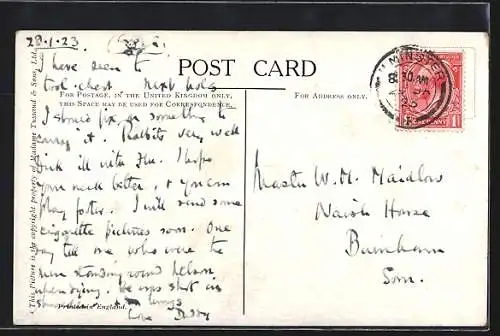 28.1.23
I have seen to
tool-chest next hols
I should fix on something to
"carry" it. Rabbits very well
Dick ill with flu. I hope
your neck better, & you can
play footer. I will send some
cigarette pictures soon. One
day tell me who were the
men standing round Nelson
when dying. He was shot in
lungs
Love Daddy
POST CARD
FOR POSTAGE, IN THE UNITED KINGDOM ONLY,
THIS SPACE MAY BE USED FOR CORRESPONDENCE.
FOR ADDRESS ONLY.
This Picture is the copyright property of Madame Tussaud & Sons, Ltd.
Printed in England.
MINSTER
30 AM
23
Master W. M. Maidlow
Naish House
Burnham
Som.